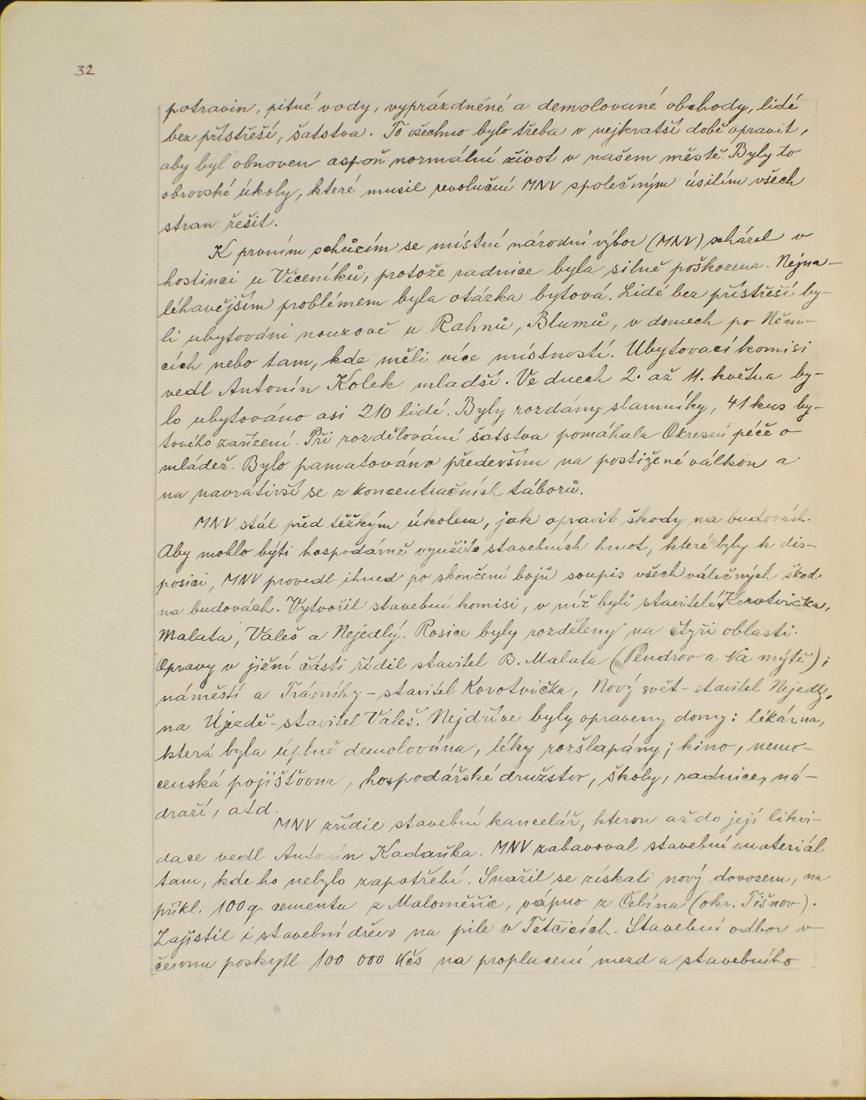 32
potravin, pitné vody, vyprázdněné a demolované obchody, lidé
bez přístřeší, šatstva. To všechno bylo třeba v nejkratší době opravit,
aby byl obnoven aspoň normální život v našem městě. Byly to
obrovské úkoly, které musil revoluční MNV společným úsilím všech
stran řešit.
K prvním schůzím se místní národní výbor (MNV) scházel v
hostinci u Viceníků, protože radnice byla silně poškozena. Nejna-
léhavějším problémem byla otázka bytová. Lidé bez přístřeší by-
li ubytováni nouzově u Rahnů, Blumů, v domech po Něm-
cích nebo tam, kde měli více místností. Ubytovací komisi
vedl Antonín Kolek mladší. Ve dnech 2. až 11. května by-
lo ubytováno asi 210 lidí. Byly rozdány slamníky, 41 kus by-
tového zařízení. Při rozdělování šatstva pomáhala Okresní péče o
mládež. Bylo pamatováno především na postižené válkou a
na navrátivší se z koncentračních táborů.
MNV stál před těžkým úkolem, jak opravit škody na budovách.
Aby mohlo býti hospodárně využito stavebních hmot, které byly k dis-
posici, MNV provedl ihned po skončení bojů soupis všech válečných škod
na budovách. Vytvořil stavební komisi, v níž byli stavitelé: Korotvička,
Malata, Valeš a Nejedlý. Rosice byly rozděleny na čtyři oblasti.
Opravy v jižní části řídil stavitel B. Malata (Pendrov a Na mýtě);
náměstí a Trávníky - stavitel Korotvička, Nový svět - stavitel Nejedlý,
na Újezdě - stavitel Valeš. Nejdříve byly opraveny domy: lékárna,
která byla úplně demolována, léky rozšlapány; kino, nemo-
censká pojišťovna, hospodářské družstvo, školy, radnice, ná-
draží, atd.
MNV zřídil stavební kancelář, kterou až do její likvi-
dace vedl Antonín Kadaňka. MNV zabavoval stavební materiál
tam, kde ho nebylo zapotřebí. Snažil se získati nový dovozem, na
příkl. 100 q cementu z Maloměřic, vápno z Čebína (okr. Tišnov).
Zajistil i stavební dřevo na pile v Tetčicích. Stavební odbor v
červnu poskytl 100 000 Kčs na proplacení mezd a stavebního